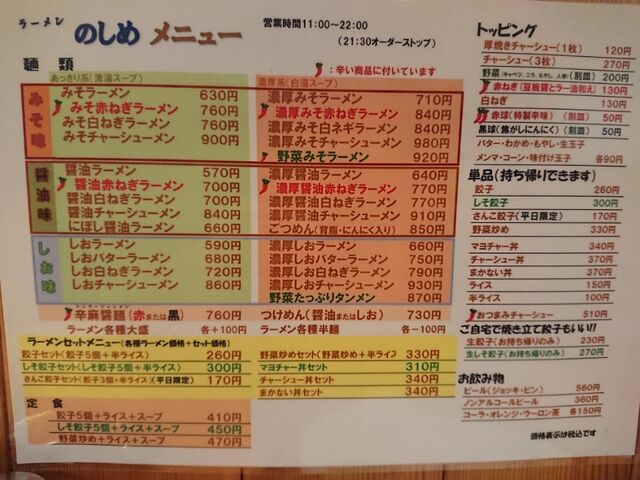 ラーメン
のしめ メニュー
営業時間11:00～22:00
(21:30オーダーストップ)
麺 類
:辛い商品に付いています
あっさり系(清湯スープ)
みそ味
みそラーメン 630円
みそ赤ねぎラーメン 760円
みそ白ねぎラーメン 760円
みそチャーシューメン 900円
濃厚系(白湯スープ)
濃厚みそラーメン 710円
濃厚みそ赤ねぎラーメン 840円
濃厚みそ白ネギラーメン 840円
濃厚みそチャーシューメン 980円
野菜みそラーメン 920円
醤油味
醤油ラーメン 570円
醤油赤ねぎラーメン 700円
醤油白ねぎラーメン 700円
醤油チャーシューメン 840円
にぼし醤油ラーメン 660円
濃厚醤油ラーメン 640円
濃厚醤油赤ねぎラーメン 770円
濃厚醤油白ねぎラーメン 770円
濃厚醤油チャーシューメン 910円
ごつめん(背脂・にんにく入り) 850円
しお味
しおラーメン 590円
しおバターラーメン 680円
しお白ねぎラーメン 720円
しおチャーシューメン 860円
濃厚しおラーメン 660円
濃厚しおバターラーメン 750円
濃厚しお白ねぎラーメン 790円
濃厚しおチャーシューメン 930円
野菜たっぷりタンメン 870円
辛麻醤麺(赤または黒) 760円
つけめん(醤油またはしお) 730円
ラーメン各種大盛 各+100円
ラーメン各種半麺 各-100円
ラーメンセットメニュー(各種ラーメン価格+セット価格)
餃子セット(餃子5個+半ライス) 260円
しそ餃子セット(しそ餃子5個+半ライス) 300円
さんこ餃子セット(餃子3個・半ライス)(平日限定) 170円
野菜炒めセット(野菜炒め+半ライス) 330円
マヨチャー丼セット 310円
チャーシュー丼セット 340円
まかない丼セット 340円
定 食
餃子5個+ライス+スープ 410円
しそ餃子5個+ライス+スープ 450円
野菜炒め+ライス+スープ 470円
トッピング
厚焼きチャーシュー(1枚) 120円
チャーシュー(3枚) 270円
野菜(キャベツ、ニラ、もやし、人参)(別皿) 200円
赤ねぎ(豆板醤とラー油和え) 130円
白ねぎ 130円
赤球(特製辛味)(別皿) 50円
黒球(焦がしにんにく)(別皿) 50円
バター・わかめ・もやし・生玉子
メンマ・コーン・味付け玉子 各90円
単品(持ち帰りできます)
餃子 260円
しそ餃子 300円
さんこ餃子(平日限定) 170円
野菜炒め 330円
マヨチャー丼 340円
チャーシュー丼 370円
まかない丼 370円
ライス 150円
半ライス 100円
おつまみチャーシュー 510円
ご自宅で焼き立て餃子もいい!!
生餃子(お持ち帰りのみ) 230円
生しそ餃子(お持ち帰りのみ) 270円
お飲み物
ビール(ジョッキ・ビン) 560円
ノンアルコールビール 360円
コーラ・オレンジ・ウーロン茶 各150円
価格表示は税込です